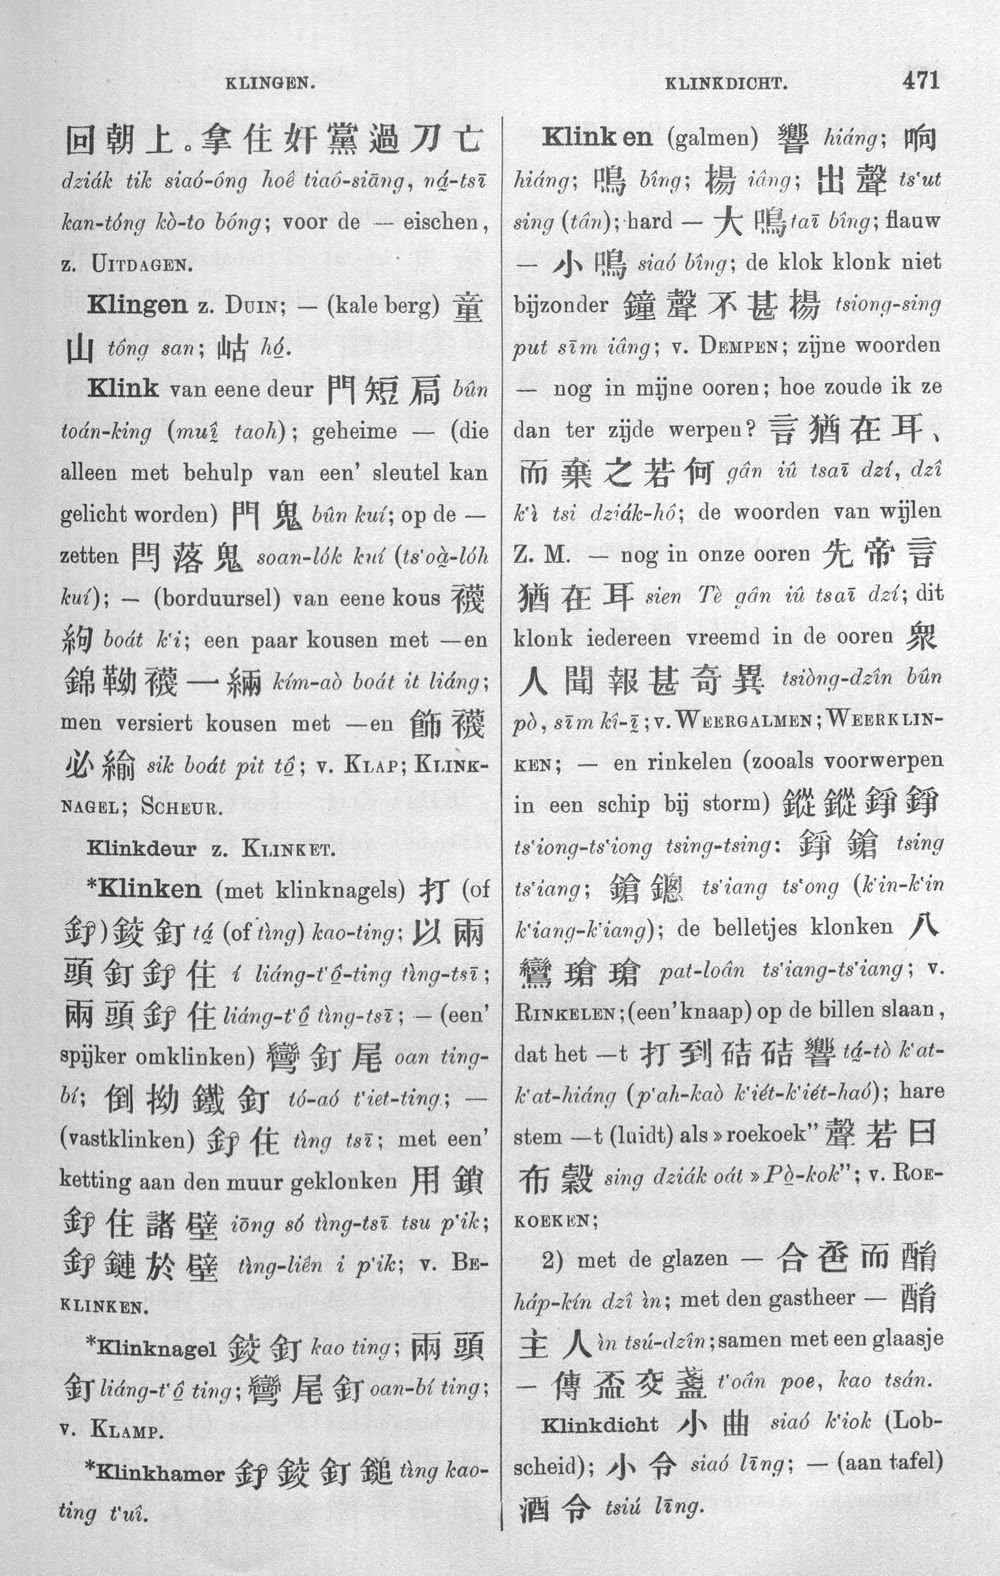 KLINGEN.
KLINKDICHT.
471
回朝上。拿住奸黨過刀亡
dziák tik siaó-ông hoê tiaó-siāng, ná̤-tsī
kan-tóng kò-to bóng; voor de — eischen,
z. UITDAGEN.
Klingen z. DUIN; — (kale berg) 童
山 tông san; 岵 hó̤.
Klink van eene deur 門短扃 bûn
toán-king (muî̤ taoh); geheime — (die
alleen met behulp van een’ sleutel kan
gelicht worden) 門鬼 bûn kuí; op de —
zetten 閂落鬼 soan-lók kuí (ts‘oà̤-lóh
kuí); — (borduursel) van eene kous 襪
絇 boát k‘i; een paar kousen met —en
錦靿襪一緉 kím-aò boát it liáng;
men versiert kousen met —en 飾襪
必緰 sik boát pit tô̤; v. KLAP; KLINK-
NAGEL; SCHEUR.
Klinkdeur z. KLINKET.
*Klinken (met klinknagels) 打 (of
釨)鉸釘 tá̤ (of tìng) kao-ting; 以兩
頭釘釨住 í liáng-t‘ô̤-ting tìng-tsī;
兩頭釨住 liáng-t‘ô̤ tìng-tsī; — (een’
spijker omklinken) 彎釘尾 oan ting-
bí; 倒拗鐵釘 tó-aó t‘iet-ting; —
(vastklinken) 釨住 tìng tsī; met een’
ketting aan den muur geklonken 用鎖
釨住諸壁 iōng só tìng-tsī tsu p‘ik;
釨鏈於壁 tìng-liên i p‘ik; v. BE-
KLINKEN.
*Klinknagel 鉸釘 kao ting; 兩頭
釘 liáng-t‘ô̤ ting; 彎尾釘 oan-bí ting;
v. KLAMP.
*Klinkhamer 釨鉸釘鎚 tìng kao-
ting t‘uî.
Klinken (galmen) 響 hiáng; 响
hiáng; 鳴 bîng; 揚 iâng; 出聲 ts‘ut
sing (tân); hard — 大鳴 taī bîng; flauw
— 小鳴 siaó bîng; de klok klonk niet
bijzonder 鐘聲不甚揚 tsiong-sing
put sīm iâng; v. DEMPEN; zijne woorden
— nog in mijne ooren; hoe zoude ik ze
dan ter zijde werpen? 言猶在耳、
而棄之若何 gân iû tsaī dzí, dzî
k‘ì tsi dziák-hô; de woorden van wijlen
Z. M. — nog in onze ooren 先帝言
猶在耳 sien Tè gân iû tsaī dzí; dit
klonk iedereen vreemd in de ooren 衆
人聞報甚奇異 tsiòng-dzîn bûn
pò, sīm kî-ī̤; v. WEERGALMEN; WEERKLIN-
KEN; — en rinkelen (zooals voorwerpen
in een schip bij storm) 鏦鏦錚錚
ts‘iong-ts‘iong tsing-tsing: 錚鎗 tsing
ts‘iang; 鎗鏓 ts‘iang ts‘ong (k‘in-k‘in
k‘iang-k‘iang); de belletjes klonken 八
鸞瑲瑲 pat-loân ts‘iang-ts‘iang; v.
RINKELEN; (een’ knaap) op de billen slaan,
dat het —t 打到硈硈響 tá̤-tò k‘at-
k‘at-hiáng (p‘ah-kaò k‘iét-k‘iét-haó); hare
stem —t (luidt) als »roekoek” 聲若曰
布穀 sing dziák oát »Pò̤-kok”; v. ROE-
KOEKEN;
2) met de glazen — 合卺而酳
háp-kín dzî ìn; met den gastheer — 酳
主人 ìn tsú-dzîn; samen met een glaasje
— 傳盃交盞 t‘oân poe, kao tsán.
Klinkdicht 小曲 siaó k‘iok (Lob-
scheid); 小令 siaó līng; — (aan tafel)
酒令 tsiú līng.